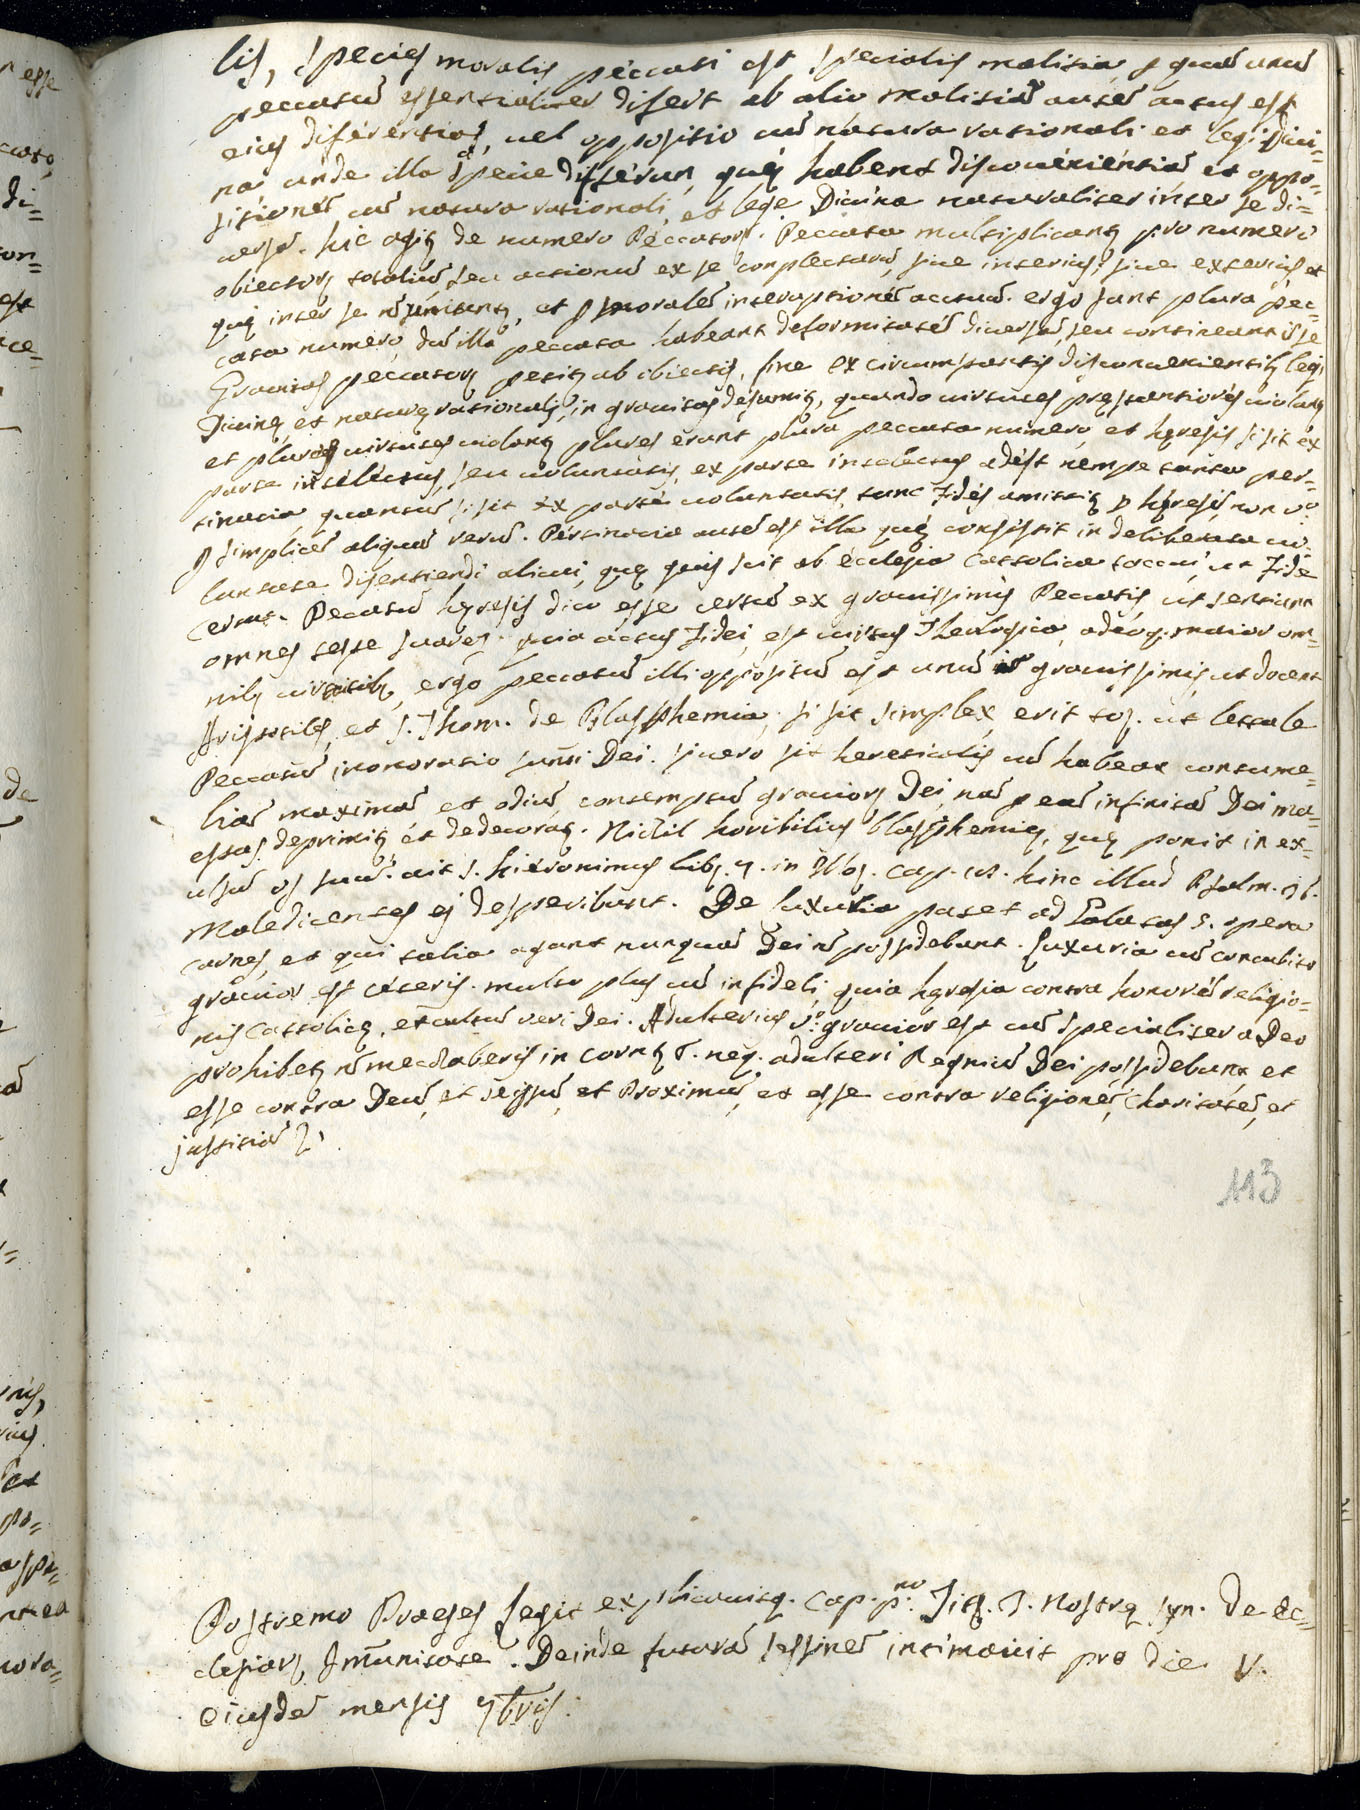 lis, species moralis peccati est specialis malitia, p quã unũ
peccatũ essentialiter difert ab alio malitiã autẽ actus est
eius diferentia, uel oppositio cũ natura rationali et legi Diui=
na unde illa specie differun, quę habent disconuenientiã et oppo=
sitionẽ cũ natura rationali, et lege Diuina naturaliter inter se di=
uersã. hic agitʒ de numero Peccatorʒ. Peccata multiplicantʒ pro numero
obiectorʒ totaliũ seu actionũ ex se complectarũ, siue interius, siue exterius, et
quę inter se nõ uniuntʒ, et p moralẽ interuptionẽ actuũ. ergo sunt plura pec=
cata numero, dũ illa peccata habeant deformitatẽ diuersã, seu contineant ĩ se
Grauitas peccatorʒ petitʒ ab obiectis, siue ex circumstantijs disconuenientibʒ legi
Diuinę, et naturę rationalis, in grauitas desumitʒ, quando uirtutes prestantiores uiolantʒ
et plures uirtutes uiolantʒ plures erunt plura peccata numero, et hęresis si sit ex
parte intelectus, seu uoluntatis, ex parte intelectus adest nempe tanta per=
tinacia, quantũ si sit ex parte uoluntatis, tunc Fides amittitʒ p hęresim non uº
p simplicẽ aliquã rerũ. Pertinacia autẽ est illa quę consistit in deliberata uo=
luntate disentiendi alicui, quę quis scit ab ecclesia Cattolica doceri, ut Fide
certũ. Peccatũ hęresis dico esse certũ ex grauissimis Peccatis ut sentiunt
omnes teste Suarez. quia actus Fidei, est uirtus Theologica, adeoq. maior om=
nibʒ uirtutibʒ, ergo peccatũ illi oppositũ est unũ ex grauissimis, ut docent
Aristotiles, et S. Thom. de Blasphemia, si sit simplex, erit toʒ. ut lettale
Peccatũ inonoratio sũmi Dei. si uero sit hereticalis cũ habeat contume=
liã maximã et odiũ, contemptũ grauiorʒ Dei, nã p eã infinitã Dei ma=
estas deprimitʒ et dedecoratʒ. Nichil horribilius blasphemię, quę ponit in ex=
celsũ os suũ. ait S. hieronimus libʒ. 7. in cap. 18. hinc illud Psalm. 36.
Maledicentes ei desperibunt. De luxuria patet ad Galatas 5. opera
carnes, et qui talia agunt nunquã Dei nõ possidebunt. Luxuria cũ concubito
grauior est ceteris. multo plus cũ infideli, quia hęresia contra honorẽ religio=
nis Cattolicę, et cultũ ueri Dei. Adulterius uº grauior est cũ specialiter a Deo
prohibetʒ nõ mechaberis in Corntʒ 6. neqʒ. adulteri Regnũ Dei possidebunt, et
esse contra Deũ, et seipsũ, et Proximũ, et esse contra religionẽ, charitatẽ, et
justitiã
113
Postremo Praeses Legit explicauitq. Cap. p.mo Titʒ. T. Nostrę syn. De Ec=
clesiarʒ Immunitate. Deinde futurã sessionẽ intimauit pro die V.
eiusdẽ mensis 7bris.